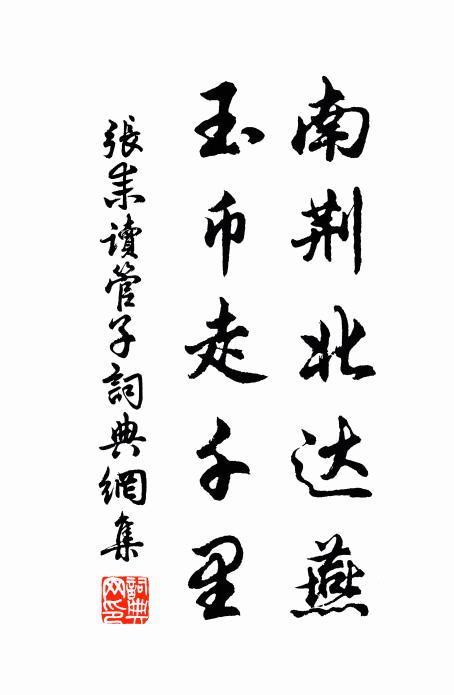 南荆北达燕
玉币走千里
張耒讀管子詞典網集
詞典网印